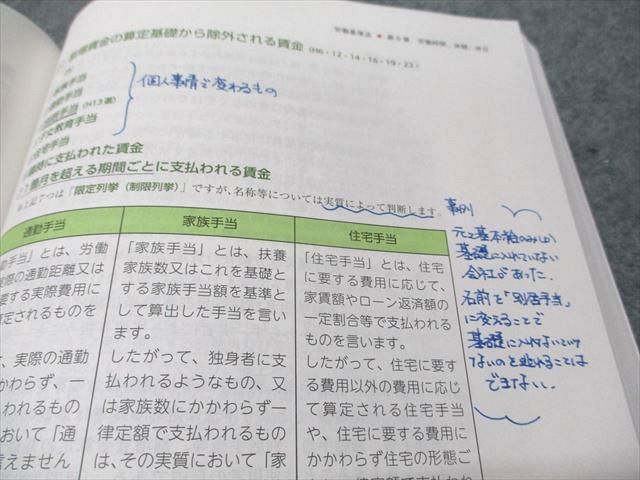 労働基準法 ● 第5章 労働時間、休憩、休日
賃金の算定基礎から除外される賃金（H6・12・14・16・19・23）
手当
手当
手当（H13選）
女教育手当
宅手当
個人事情で変わるもの
に支払われた賃金
箇月を超える期間ごとに支払われる賃金
上記7つは「限定列挙（制限列挙）」ですが、名称等については実質によって判断します。
事例
元々基本給のみしか
基礎に入れていない
会社があった。
名前を「別居手当」
に変えることで
基礎に入れないといけ
ないのを逃れることは
できない。
通勤手当
手当」とは、労働
実際の通勤距離又は
要する実際費用に
定されるものを
、実際の通勤
かわらず、一
われるもの
おいて「通
言えません
家族手当
「家族手当」とは、扶養
家族数又はこれを基礎と
する家族手当額を基準と
して算出した手当を言い
ます。
したがって、独身者に支
払われるようなもの、又
は家族数にかかわらず一
律定額で支払われるもの
は、その実質において「家
住宅手当
「住宅手当」とは、住宅
に要する費用に応じて、
家賃額やローン返済額の
一定割合等で支払われる
ものを言います。
したがって、住宅に要す
る費用以外の費用に応じ
て算定される住宅手当
や、住宅に要する費用に
かかわらず住宅の形態ご